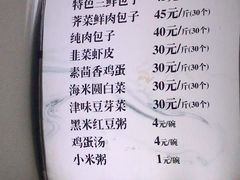 特色三鲜包子
45元/斤(30个)
荠菜鲜肉包子
40元/斤(30个)
纯肉包子 40元/斤(30个)
韭菜虾皮 30元/斤(30个)
素茴香鸡蛋 30元/斤(30个)
海米圆白菜 30元/斤(30个)
津味豆芽菜 30元/斤(30个)
黑米红豆粥 4元/碗
鸡蛋汤 4元/碗
小米粥 1元/碗